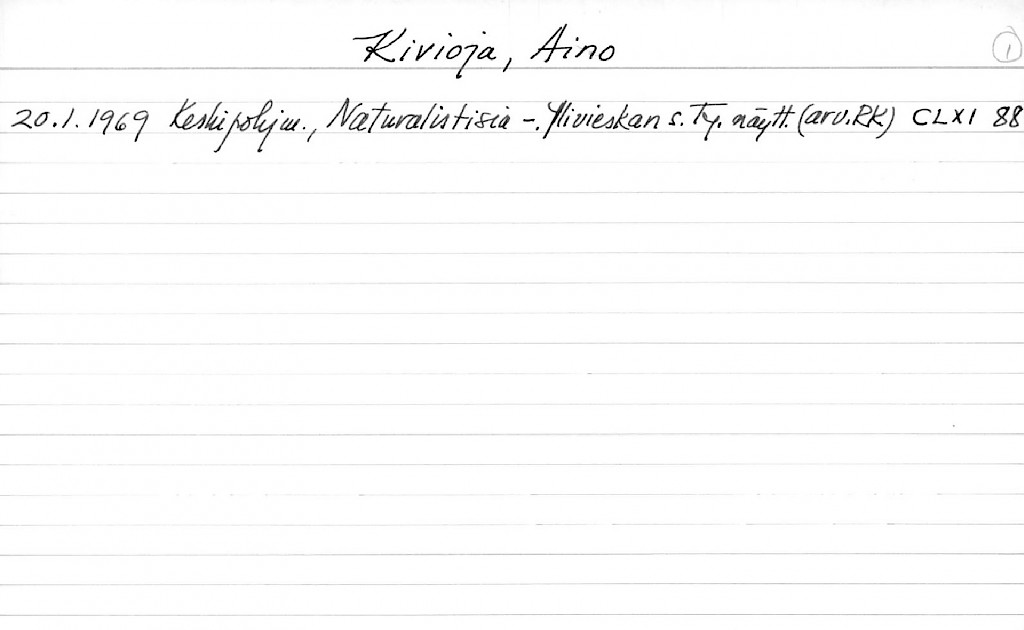 Kivioja, Aino 1
20.1.1969 Keskipohjm., Naturalistisia -. Ylivieskan s. Ty. näytt. (arv. RK) CLXI 88